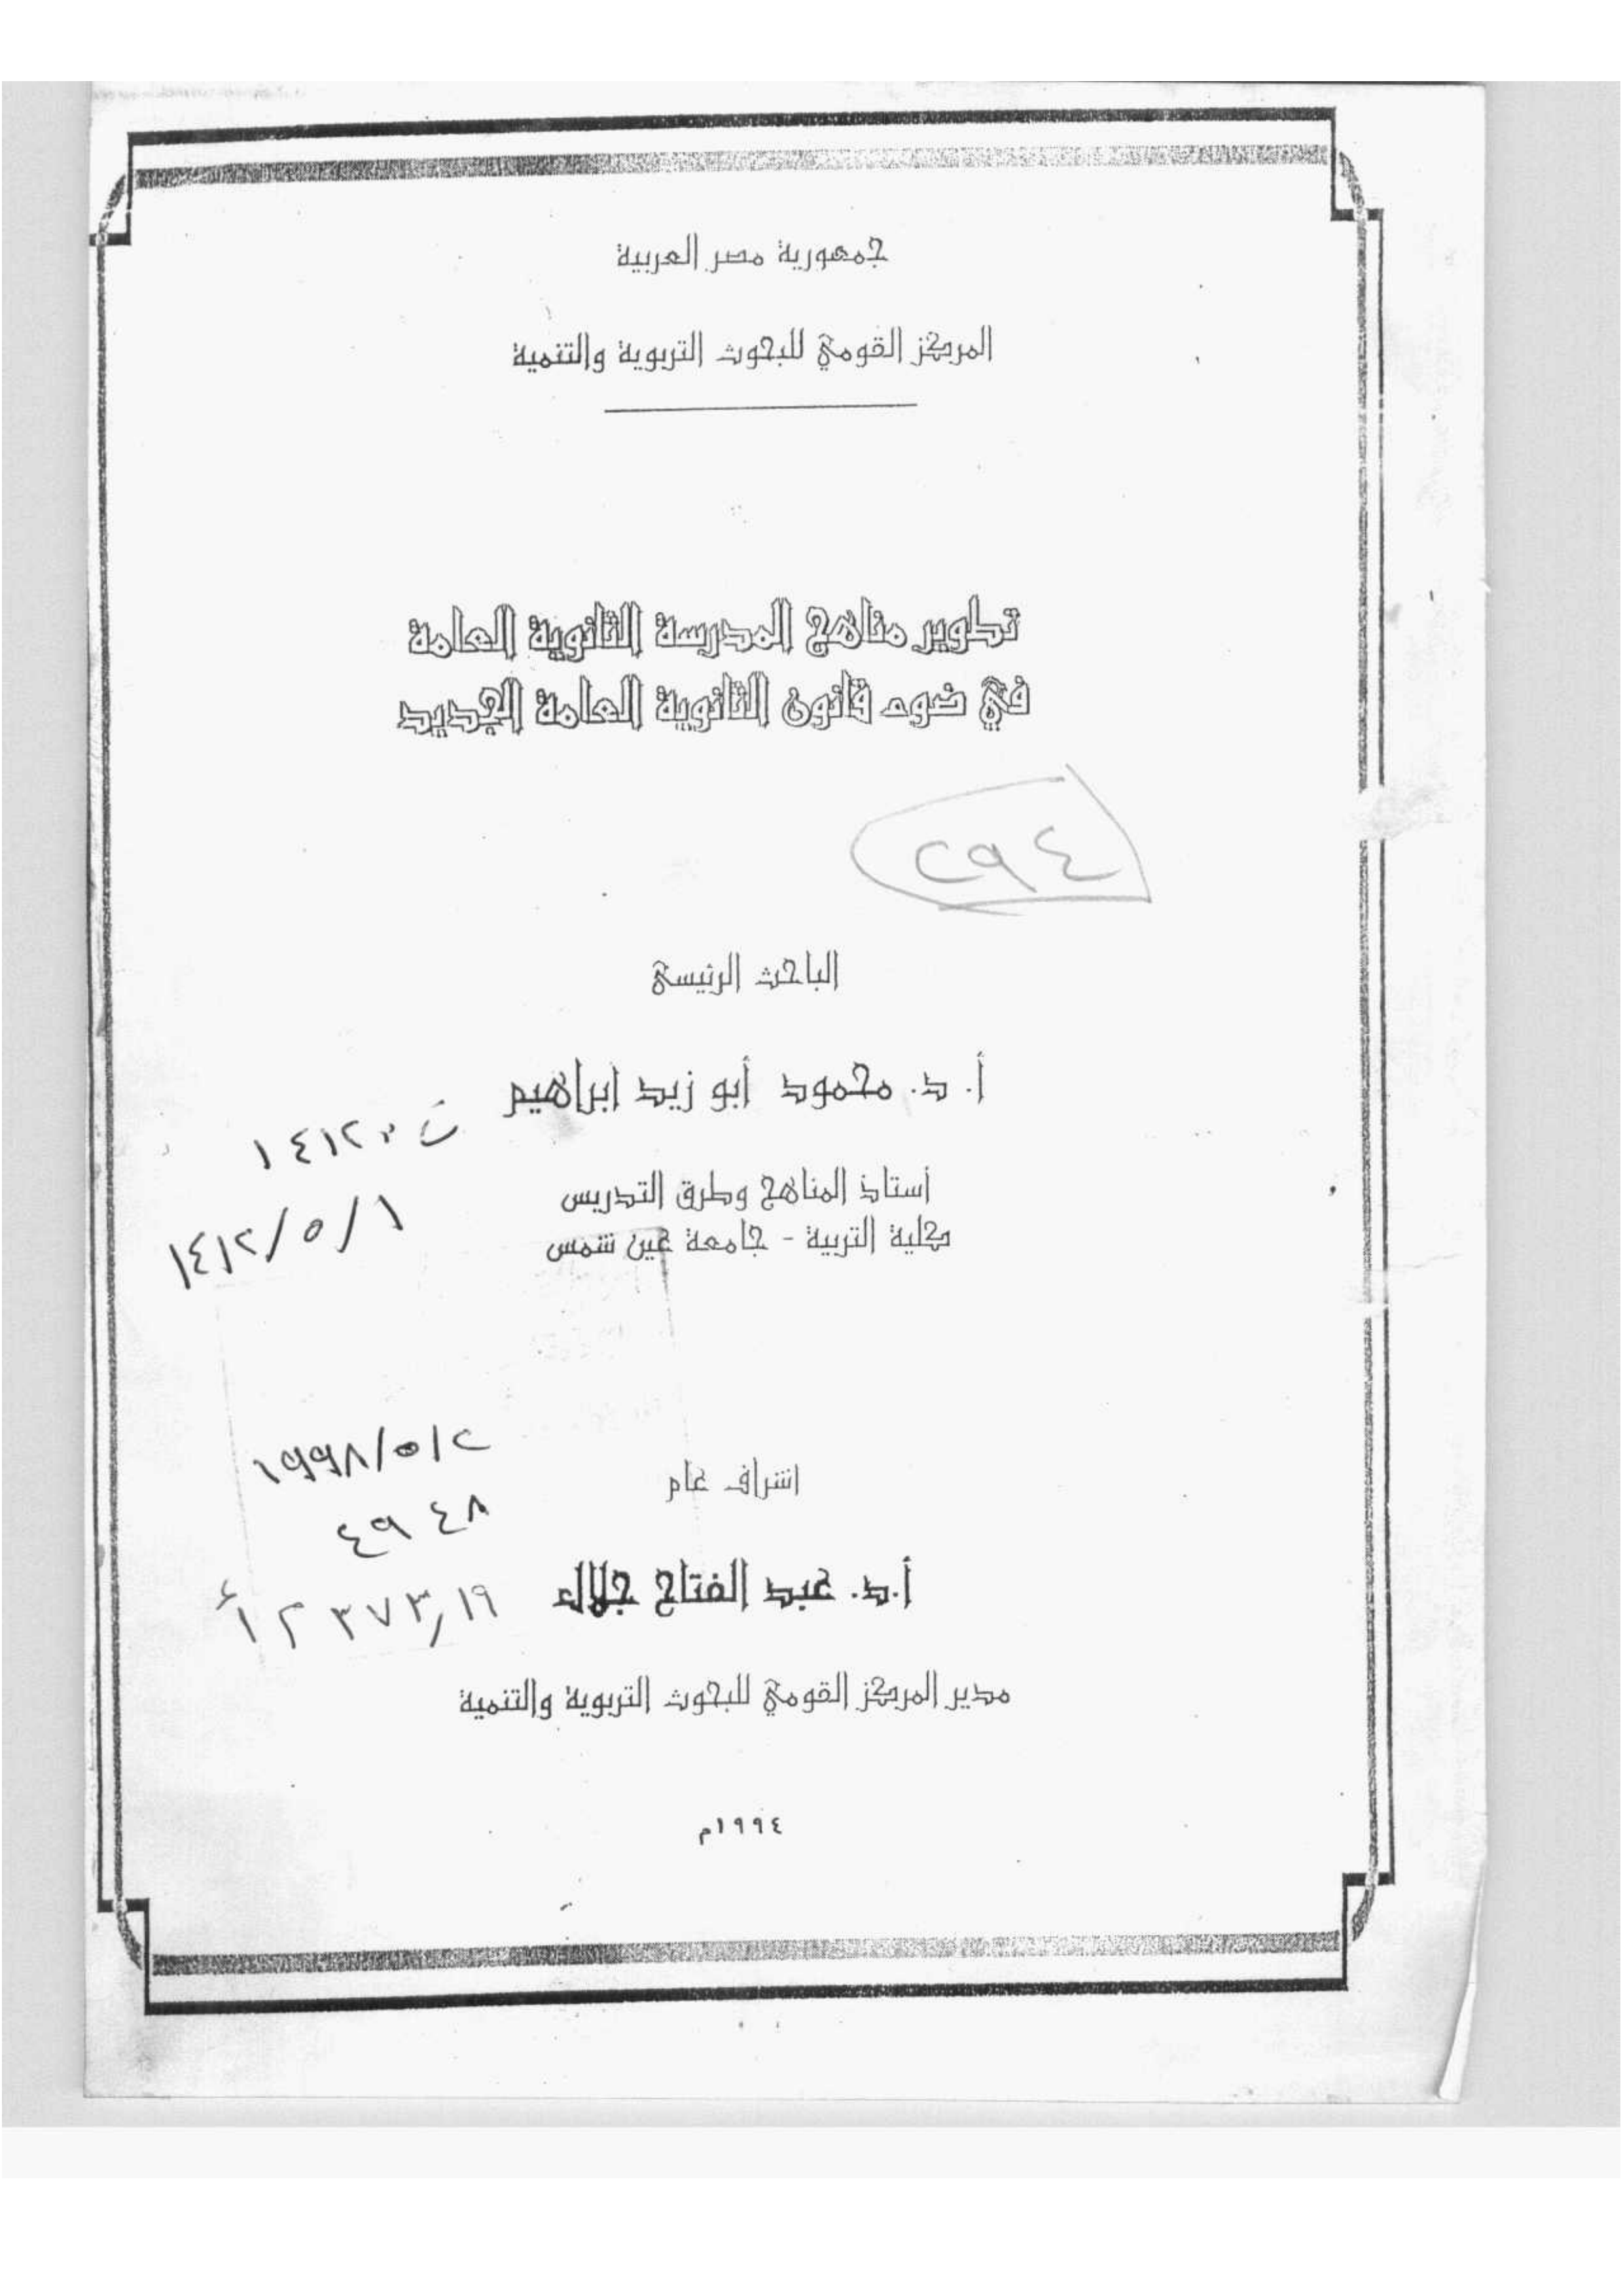 جمهورية مصر العربية
المركز القومي للبحوث التربوية والتنمية
تطوير مناهج المدرسة الثانوية العامة
في ضوء قانون الثانوية العامة الجديد
٢٩٤
الباحث الرئيسى
أ. د. محمود أبو زيد ابراهيم
أستاذ المناهج وطرق التدريس
كلية التربية - جامعة عين شمس
١٤١٢/٥/١
١٩٩٨/٥/٢
اشراف عام
٤٩٤٨
أ.د. عبد الفتاح جلال
٣٧٣,١٩
مدير المركز القومي للبحوث التربوية والتنمية
١٩٩٤م